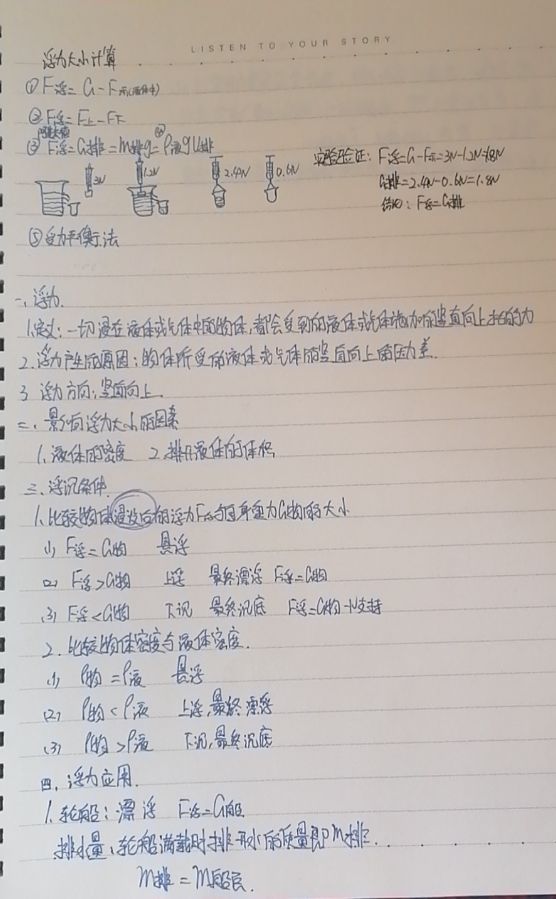 LISTEN TO YOUR STORY
浮力大小计算
① F浮= G-F
② F浮=F上-F下
③ F浮=G排=m排g=ρ液gV排
3N 1.2N 2.4N 0.6N
实验验证: F浮=G-F示=3N-1.2N=1.8N
G排=2.4N-0.6N=1.8N
结论: F浮=G排
⑤受力平衡法
一、浮力
1.定义: 一切浸在液体或气体中的物体,都会受到的液体或气体施加的竖直向上托的力
2.浮力产生的原因: 物体所受的液体或气体的竖直向上的压力差.
3 浮力方向: 竖直向上
二、影响浮力大小的因素
1.液体的密度 2.排开液体的体积
三、浮沉条件.
1.比较物体浸没后的浮力F浮与自身重力G物的大小
(1) F浮=G物 悬浮
(2) F浮>G物 上浮 最终漂浮 F浮=G物
(3) F浮<G物 下沉 最终沉底 F浮=G物-N支持
2.比较物体密度与液体密度.
(1) ρ物=ρ液 悬浮
(2) ρ物<ρ液 上浮,最终漂浮
(3) ρ物>ρ液 下沉,最终沉底
四.浮力应用.
1.轮船: 漂浮 F浮=G船
排水量: 轮船满载时排开水的质量即m排.
m排=m船